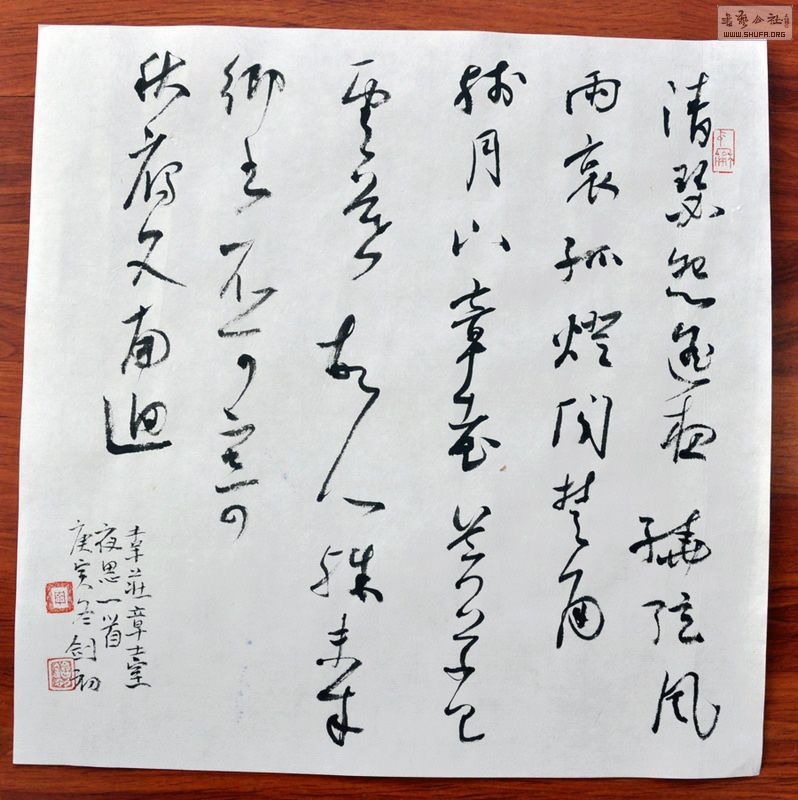 清瑟怨遥夜繞弦風
雨哀孤燈聞楚角
残月下章臺芳草已
雲暮故人殊未来
鄉書不可寄
秋雁又南迴
韋莊章臺
夜思一首
庚寅冬剑
書藝公社
WWW.SHUFA.ORG